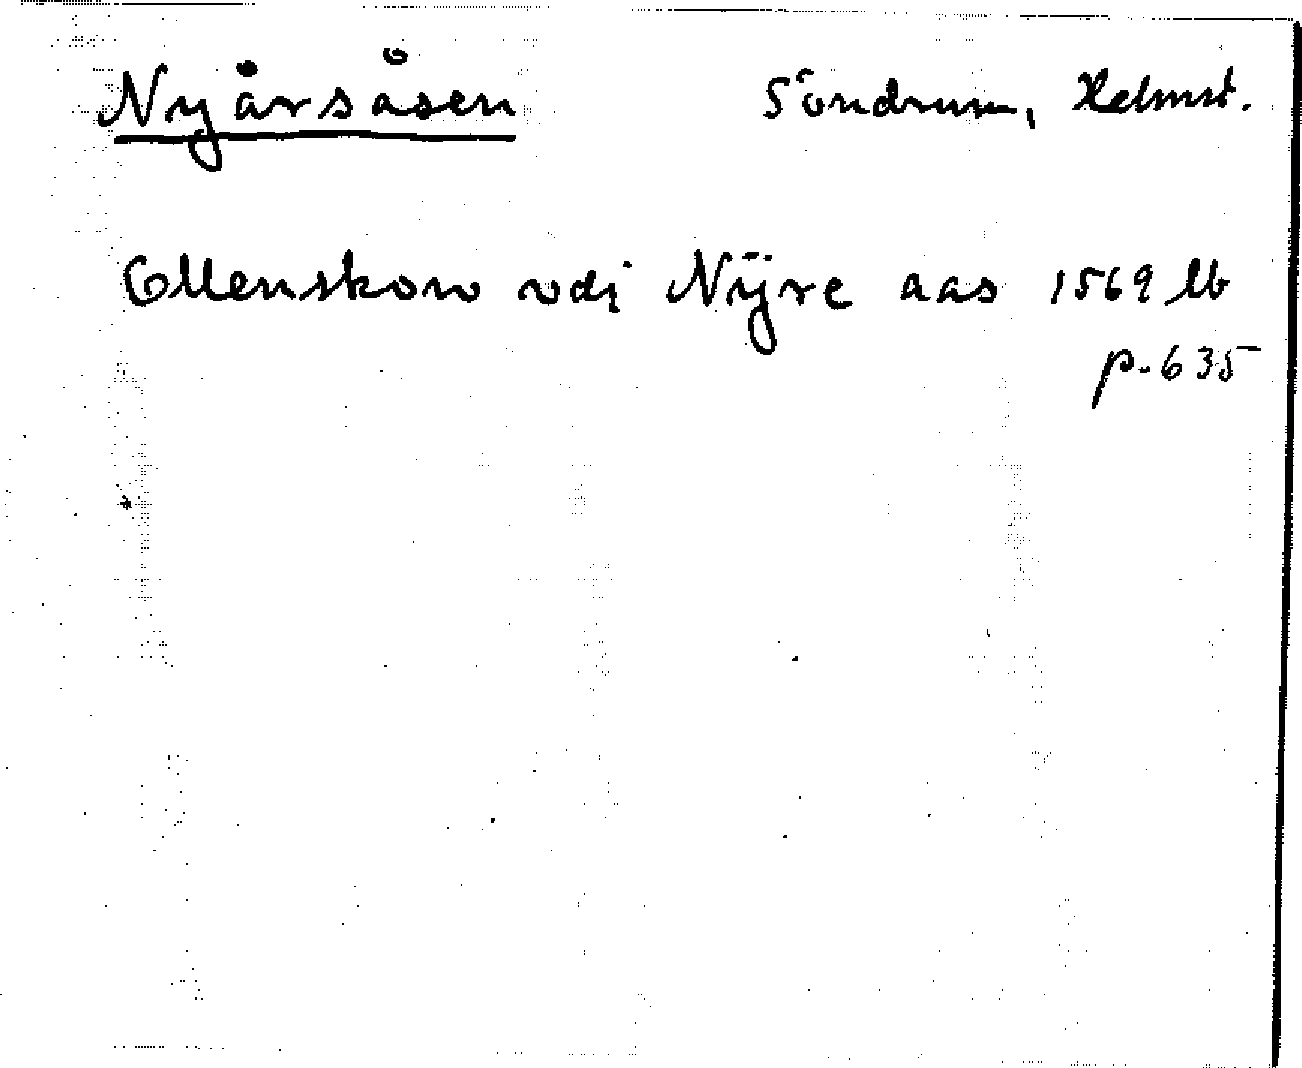 Nyårsåsen Söndrum, Helmst.
Ellenskow vdj Nÿre aas 1569 lb
p. 635